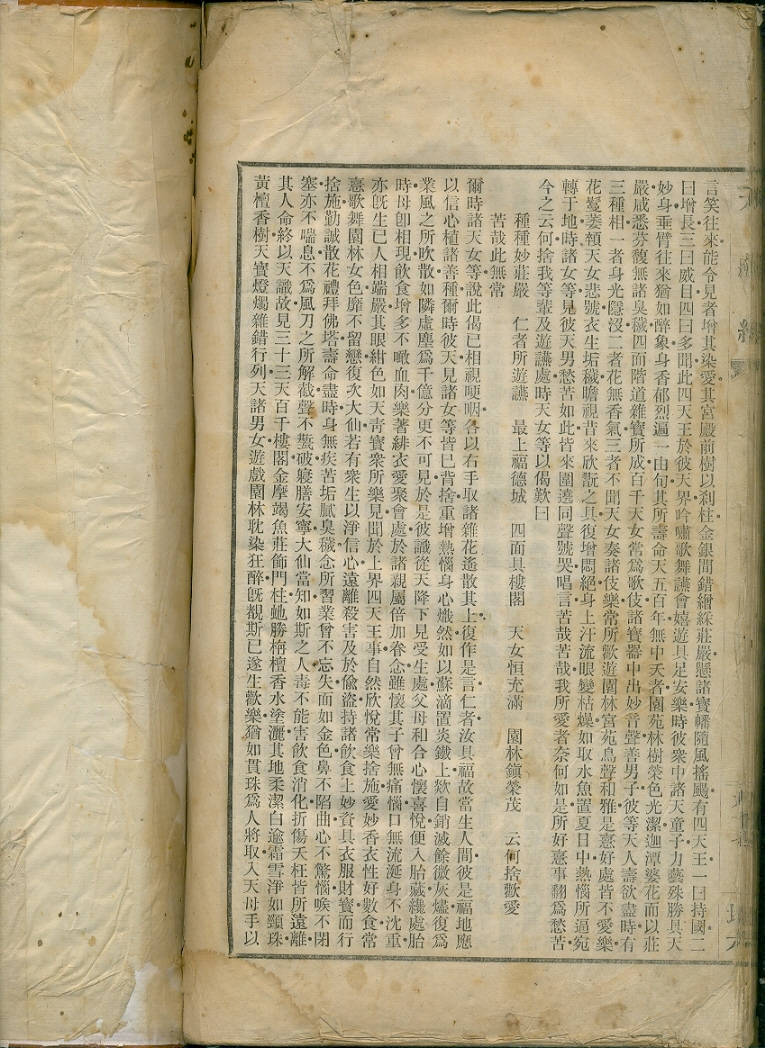 言笑往來能令見者增其染愛其宮殿前樹以剎柱金銀間錯繒綵莊嚴懸諸寶幡隨風搖颺有四天王一曰持國二
曰增長三曰威目四曰多聞此四天王於彼天界吟嘯歌舞讌會嬉遊具足安樂時彼衆中諸天童子力藝殊勝具天
妙身垂臂往來猶如醉象身香郁烈遍一由旬其所壽命天五百年無中夭者園苑林樹榮色光潔迦潭婆花而以莊
嚴咸悉芬馥無諸臭穢四面階道雜寶所成百千天女常爲歌伎諸寶器中出妙音聲善男子彼等天人壽欲盡時有
三種相一者身光隱沒二者花無香氣三者不聞天女奏諸伎樂常所歡遊園林宮苑鳥聲和雅是意好處皆不愛樂
花鬘萎顇天女悲號衣生垢穢瞻視昔來欣翫之具復增悶絕身上汗流眼變枯燥如取水魚置夏日中熱惱所逼宛
轉于地時諸女等見彼天男愁苦如此皆來圍遶同聲號哭唱言苦哉苦哉我所愛者奈何如是所好意事翻爲愁苦
今之云何捨我等輩及遊讌處時天女等以偈歎曰
種種妙莊嚴 仁者所遊讌 最上福德城 四面具樓閣 天女恒充滿 園林鎭榮茂 云何捨歡愛
苦哉此無常
爾時諸天女等說此偈已相視哽咽各以右手取諸雜花遙散其上復作是言仁者汝具福故當生人間彼是福地應
以信心植諸善種爾時彼天見諸女等皆已背捨重增熱惱身心熾然如以蘇滴置炎鐵上欻自銷滅餘微灰燼復爲
業風之所吹散如隣虛塵爲千億分更不可見於是彼識從天降下見受生處父母和合心懷喜悅便入胎藏纔處胎
時母卽相現飲食增多不噉血肉樂著緋衣愛聚會處於諸親屬倍加眷念雖懷其子曾無痛惱口無流涎身不沈重
亦旣生已人相端嚴其眼紺色如天靑寶衆所樂見聞於上界四天王事自然欣悅常樂捨施愛妙香衣性好數食常
憙歌舞園林女色靡不留戀復次大仙若有衆生以淨信心遠離殺害及於偸盜持諸飲食上妙資具衣服財寶而行
捨施勤誠散花禮拜佛塔壽命盡時身無疾苦垢膩臭穢念所習業曾不忘失面如金色鼻不陷曲心不驚惱喉不閉
塞亦不喘息不爲風刀之所解截聲不嘶破寢膳安寧大仙當知如斯之人毒不能害飲食消化折傷夭枉皆所遠離
其人命終以天識故見三十三天百千樓閣金摩竭魚莊飾門柱虵勝栴檀香水塗灑其地柔潔白逾霜雪淨如頸珠
黃檀香樹天寶燈燭雜錯行列天諸男女遊戲園林耽染狂醉旣覩斯已遂生歡樂猶如貫珠爲人將取入天母手以